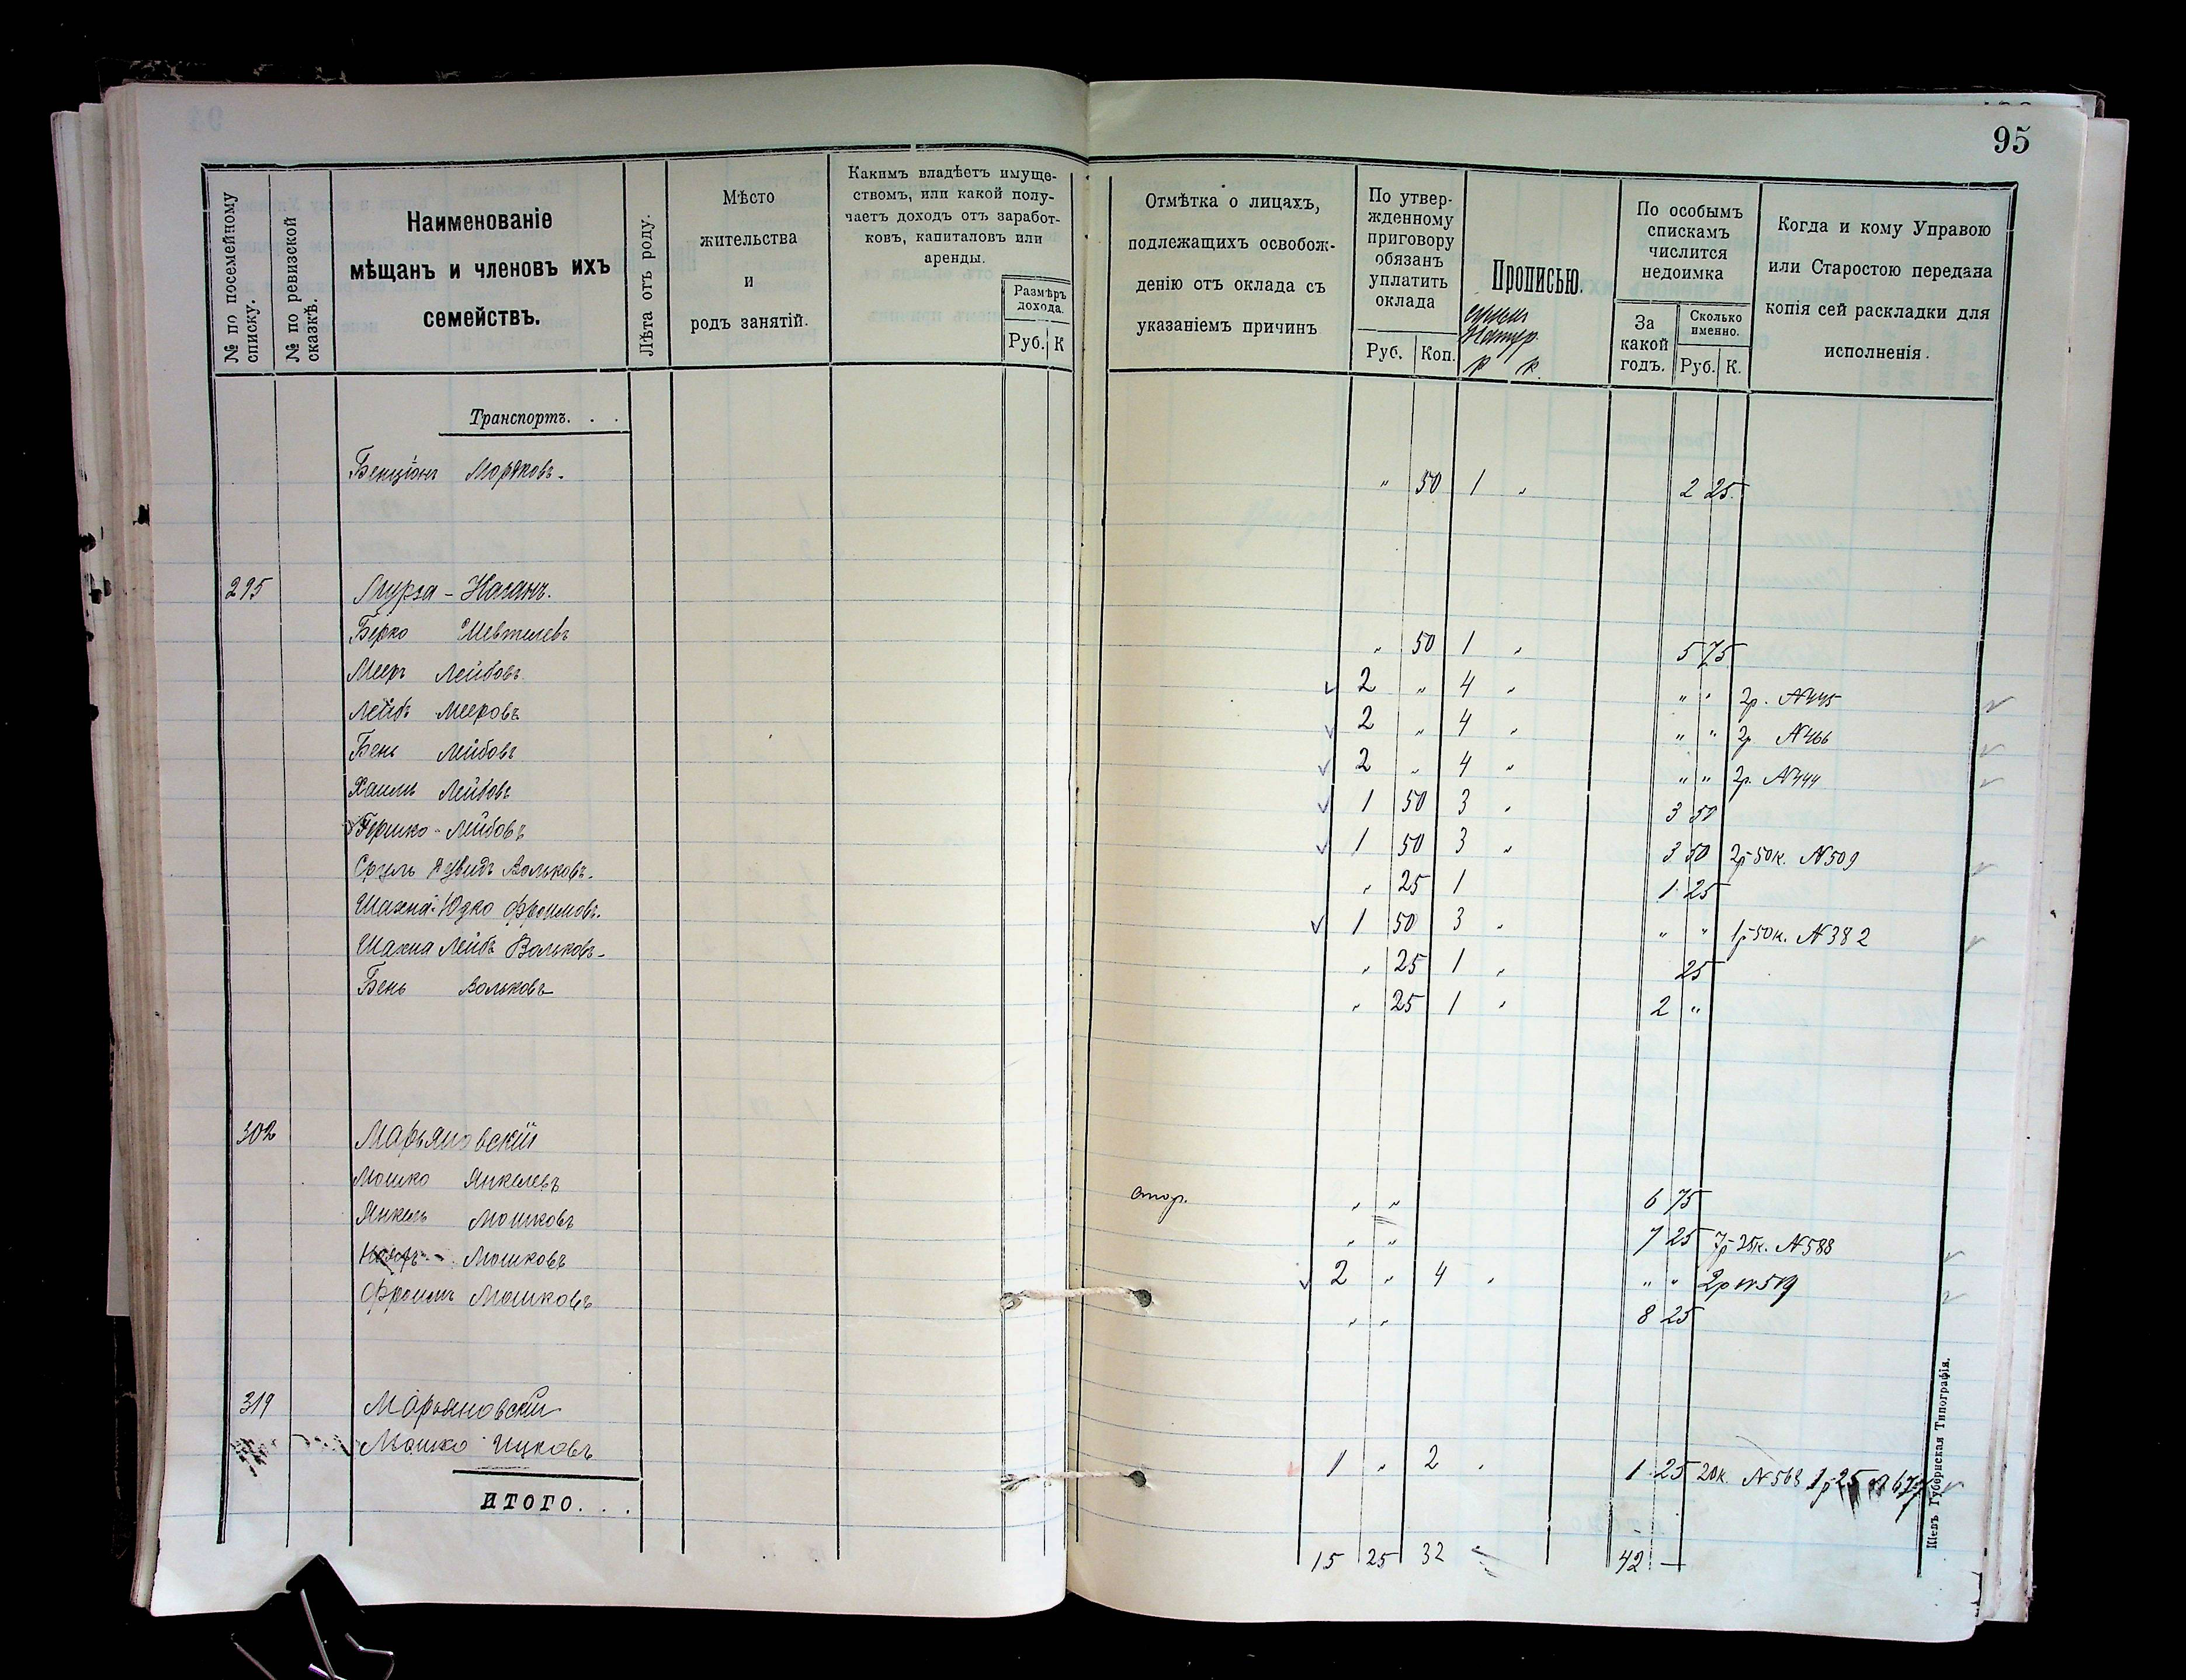 95
№ по посемейному списку.
№ по ревизской сказкѣ.
Наименованіе
мѣщанъ и членовъ ихъ
семействъ.
Лѣта отъ роду.
Мѣсто
жительства
и
родъ занятій.
Какимъ владѣетъ имуще-
ствомъ, или какой полу-
чаетъ доходъ отъ заработ-
ковъ, капиталовъ или
аренды.
Размѣръ
дохода.
Руб. К
Отмѣтка о лицахъ,
подлежащихъ освобож-
денію отъ оклада съ
указаніемъ причинъ
По утвер-
жденному
приговору
обязанъ
уплатить
оклада
Руб. Коп.
Прописью.
р к.
По особымъ
спискамъ
числится
недоимка
За
какой
годъ.
Сколько
именно.
Руб. К.
Когда и кому Управою
или Старостою передана
копія сей раскладки для
исполненія.
Транспортъ. . .
Бенціонъ Морковъ. " 50 1 " 2 25
295 Мурза-Наганъ.
Берко Шевтелевъ " 50 1 " 5 75
Мееръ Лейбовъ 2 " 4 " " " 2р. №445
Лейбъ Мееровъ 2 " 4 " " " 2р №466
Бень Лейбовъ 2 " 4 " " " 2р. №444
Хаимъ Лейбовъ 1 50 3 " 3 50
Гершко-Лейбовъ 1 50 3 " 3 50 2р 50к. №509
Сруль Давидъ Вольковъ. " 25 1 1 25
Шахна-Юдко Фроимовъ. 1 50 3 " " " 1р 50к. №382
Шахна Лейбъ Вольковъ " 25 1 " 25
Бень Вольковъ " 25 1 " 2 "
302 Марьяновскій
Мошко Янкелевъ " " 6 75
Янкель Мошковъ " " 7 25 7р 25к. №588
Мошковъ 2 " 4 " " " 2р №519
Фроимъ Мошковъ " " 8 25
319 Марьяновскій
Мошко Ицковъ 1 " 2 " 1 25 20к. №568 1р 25
ИТОГО. . .
15 25 32 " 42 —
Кіевъ Губернская Типографія.